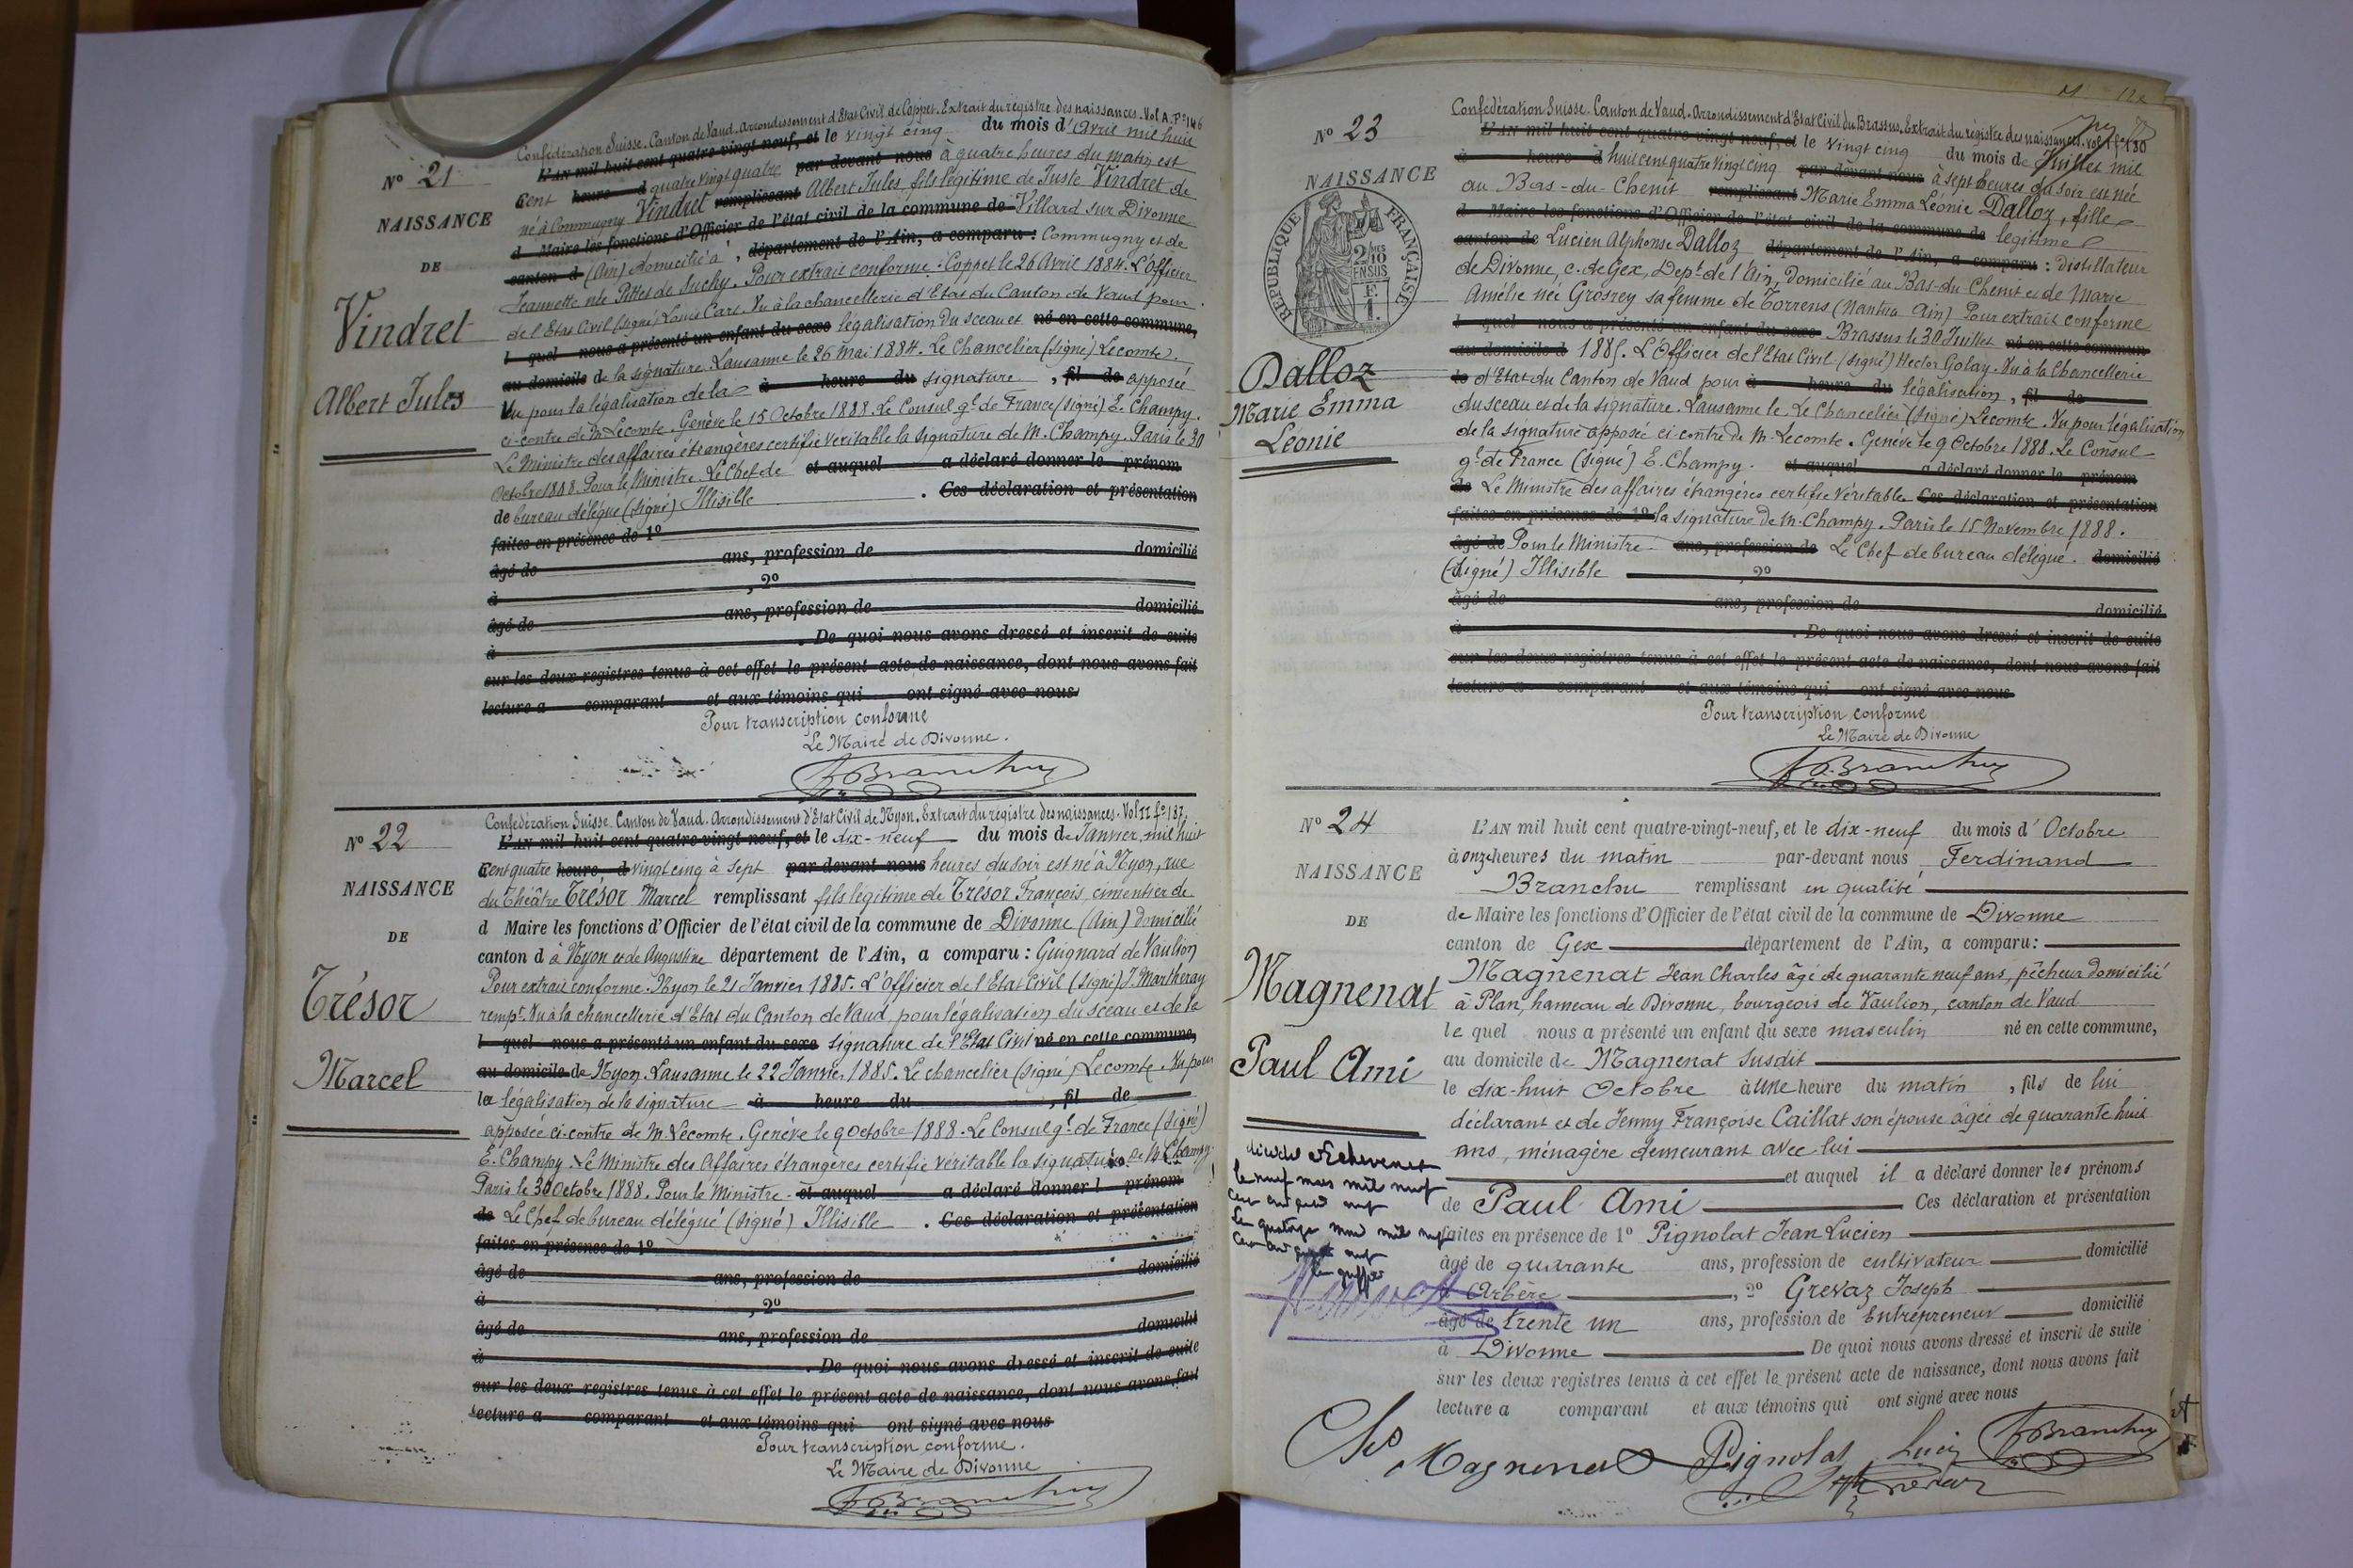 Confédération Suisse. Canton de Vaud. Arrondissement d'Etat Civil de Coppet. Extrait du registre des naissances. Vol A. Fo 146
No 21
NAISSANCE
DE
Vindret
Albert Jules
L'AN mil huit cent quatre-vingt-neuf, et le vingt cinq du mois d'Avril mil huit
cent heure d quatre vingt quatre par devant nous à quatre heures du matin est
né à Commugny Vindret remplissant Albert Jules, fils légitime de Juste Vindret de
d Maire les fonctions d'Officier de l'état civil de la commune de Villard sur Divonne
canton d (Ain) domicilié à , département de l'Ain, a comparu : Commugny et de
Jeannette née Pittet de Suchy. Pour extrait conforme : Coppet le 26 Avril 1884. L'Officier
de l'Etat Civil (signé) Louis Cart. Vu à la chancellerie d'Etat du Canton de Vaud pour
l quel nous a présenté un enfant du sexe légalisation du sceau et né en cette commune,
au domicile de la signature. Lausanne le 26 Mai 1884. Le Chancelier (signé) Lecomte.
Vu pour la légalisation de la à heure du signature , fil de apposée
ci-contre de M. Lecomte. Genève le 15 Octobre 1888. Le Consul gl de France (signé) E. Champy.
Le Ministre des affaires étrangères certifie véritable la signature de M. Champy. Paris le 30
Octobre 1888. Pour le Ministre. Le Chef de et auquel a déclaré donner le prénom
de bureau délégué (signé) Illisible . Ces déclaration et présentation
faites en présence de 1o
âgé de ans, profession de domicilié
à , 2o
âgé de ans, profession de domicilié
à . De quoi nous avons dressé et inscrit de suite
sur les deux registres tenus à cet effet le présent acte de naissance, dont nous avons fait
lecture a comparant et aux témoins qui ont signé avec nous
Pour transcription conforme
Le Maire de Divonne.
F. Branchu
Confédération Suisse. Canton de Vaud. Arrondissement d'Etat Civil de Nyon. Extrait du registre des naissances. Vol II fo 187.
No 22
NAISSANCE
DE
Trésor
Marcel
L'AN mil huit cent quatre-vingt-neuf, et le dix-neuf du mois de Janvier mil huit
cent quatre heure, d vingt cinq à sept par devant nous heures du soir est né à Nyon, rue
du Théâtre Trésor Marcel remplissant fils légitime de Trésor François, cimentier de
d Maire les fonctions d'Officier de l'état civil de la commune de Divonne (Ain) domicilié
canton d à Nyon et de Augustine département de l'Ain, a comparu : Guignard de Vaulion
Pour extrait conforme. Nyon le 21 Janvier 1885. L'Officier de l'Etat Civil (signé) J. Martheray
rempt. Vu à la chancellerie d'Etat du Canton de Vaud, pour légalisation du sceau et de la
l quel nous a présenté un enfant du sexe signature de l'Etat Civil né en cette commune,
au domicile de de Nyon. Lausanne le 22 Janvier 1885. Le chancelier (signé) Lecomte. Vu pour
la légalisation de la signature à heure du , fil de
apposée ci-contre de M. Lecomte. Genève le 9 Octobre 1888. Le Consul gl de France (signé)
E. Champy. Le Ministre des Affaires étrangères certifie véritable la signature de M. Champy.
Paris le 30 Octobre 1888. Pour le Ministre. et auquel a déclaré donner l prénom
de Le Chef de bureau délégué (signé) Illisible . Ces déclaration et présentation
faites en présence de 1o
âgé de ans, profession de domicilié
à , 2o
âgé de ans, profession de domicilié
à . De quoi nous avons dressé et inscrit de suite
sur les deux registres tenus à cet effet le présent acte de naissance, dont nous avons fait
lecture a comparant et aux témoins qui ont signé avec nous
Pour transcription conforme.
Le Maire de Divonne
F. Branchu
Confédération Suisse. Canton de Vaud. Arrondissement d'Etat Civil du Brassus. Extrait du registre des naissances. vol 1 fo 130
No 23
NAISSANCE
RÉPUBLIQUE FRANÇAISE
2/10 EN SUS
1 F.
Dalloz
Marie Emma
Léonie
L'AN mil huit cent quatre-vingt-neuf, et le vingt cinq du mois de Juillet mil
à heure d huit cent quatre vingt cinq par devant nous à sept heures du soir est née
au Bas-du-Chenit remplissant Marie Emma Léonie Dalloz, fille
d Maire les fonctions d'Officier de l'état civil de la commune de légitime
canton de Lucien Alphonse Dalloz département de l'Ain, a comparu : distillateur
de Divonne, c. de Gex, Dept de l'Ain, domicilié au Bas-du-Chenit et de Marie
Amélie née Grosrey sa femme de Torrens (Nantua Ain) Pour extrait conforme
l quel nous a présenté un enfant du sexe Brassus le 30 Juillet né en cette commun
au domicile d 1885. L'Officier de l'Etat Civil (signé) Hector Golay. Vu à la Chancellerie
le d'Etat du Canton de Vaud pour à heure du légalisation , fil de
du sceau et de la signature. Lausanne le. Le Chancelier (signé) Lecomte. Vu pour légalisation
de la signature apposée ci-contre de M. Lecomte. Genève le 9 Octobre 1888. Le Consul
gl de France (signé) E. Champy. et auquel a déclaré donner le prénom
de Le Ministre des affaires étrangères certifie véritable Ces déclaration et présentation
faites en présence de 1o la signature de M. Champy. Paris le 15 Novembre 1888.
âgé de Pour le Ministre. ans, profession de Le Chef de bureau délégué. domicilié
(signé) Illisible , 2o
âgé de ans, profession de domicilié
à . De quoi nous avons dressé et inscrit de suite
sur les deux registres tenus à cet effet le présent acte de naissance, dont nous avons fait
lecture a comparant et aux témoins qui ont signé avec nous
Pour transcription conforme
Le Maire de Divonne
F. Branchu
No 24
NAISSANCE
DE
Magnenat
Paul Ami
L'AN mil huit cent quatre-vingt-neuf, et le dix-neuf du mois d'Octobre
à onze heures du matin par-devant nous Ferdinand
Branchu remplissant en qualité
de Maire les fonctions d'Officier de l'état civil de la commune de Divonne
canton de Gex département de l'Ain, a comparu :
Magnenat Jean Charles âgé de quarante neuf ans, pêcheur domicilié
à Plan, hameau de Divonne, bourgeois de Vaulion, canton de Vaud
le quel nous a présenté un enfant du sexe masculin né en cette commune,
au domicile de Magnenat susdit
le dix-huit Octobre à une heure du matin , fils de lui
déclarant et de Jenny Françoise Caillat son épouse âgée de quarante huit
ans, ménagère demeurant avec lui
et auquel il a déclaré donner les prénoms
de Paul Ami Ces déclaration et présentation
faites en présence de 1o Pignolat Jean Lucien
âgé de quarante ans, profession de cultivateur domicilié
à Arbère , 2o Grevaz Joseph
âgé de trente un ans, profession de Entrepreneur domicilié
à Divonne De quoi nous avons dressé et inscrit de suite
sur les deux registres tenus à cet effet le présent acte de naissance, dont nous avons fait
lecture a comparant et aux témoins qui ont signé avec nous
le neuf mars mil neuf
Chs Magnenat Pignolat Lucien F. Branchu